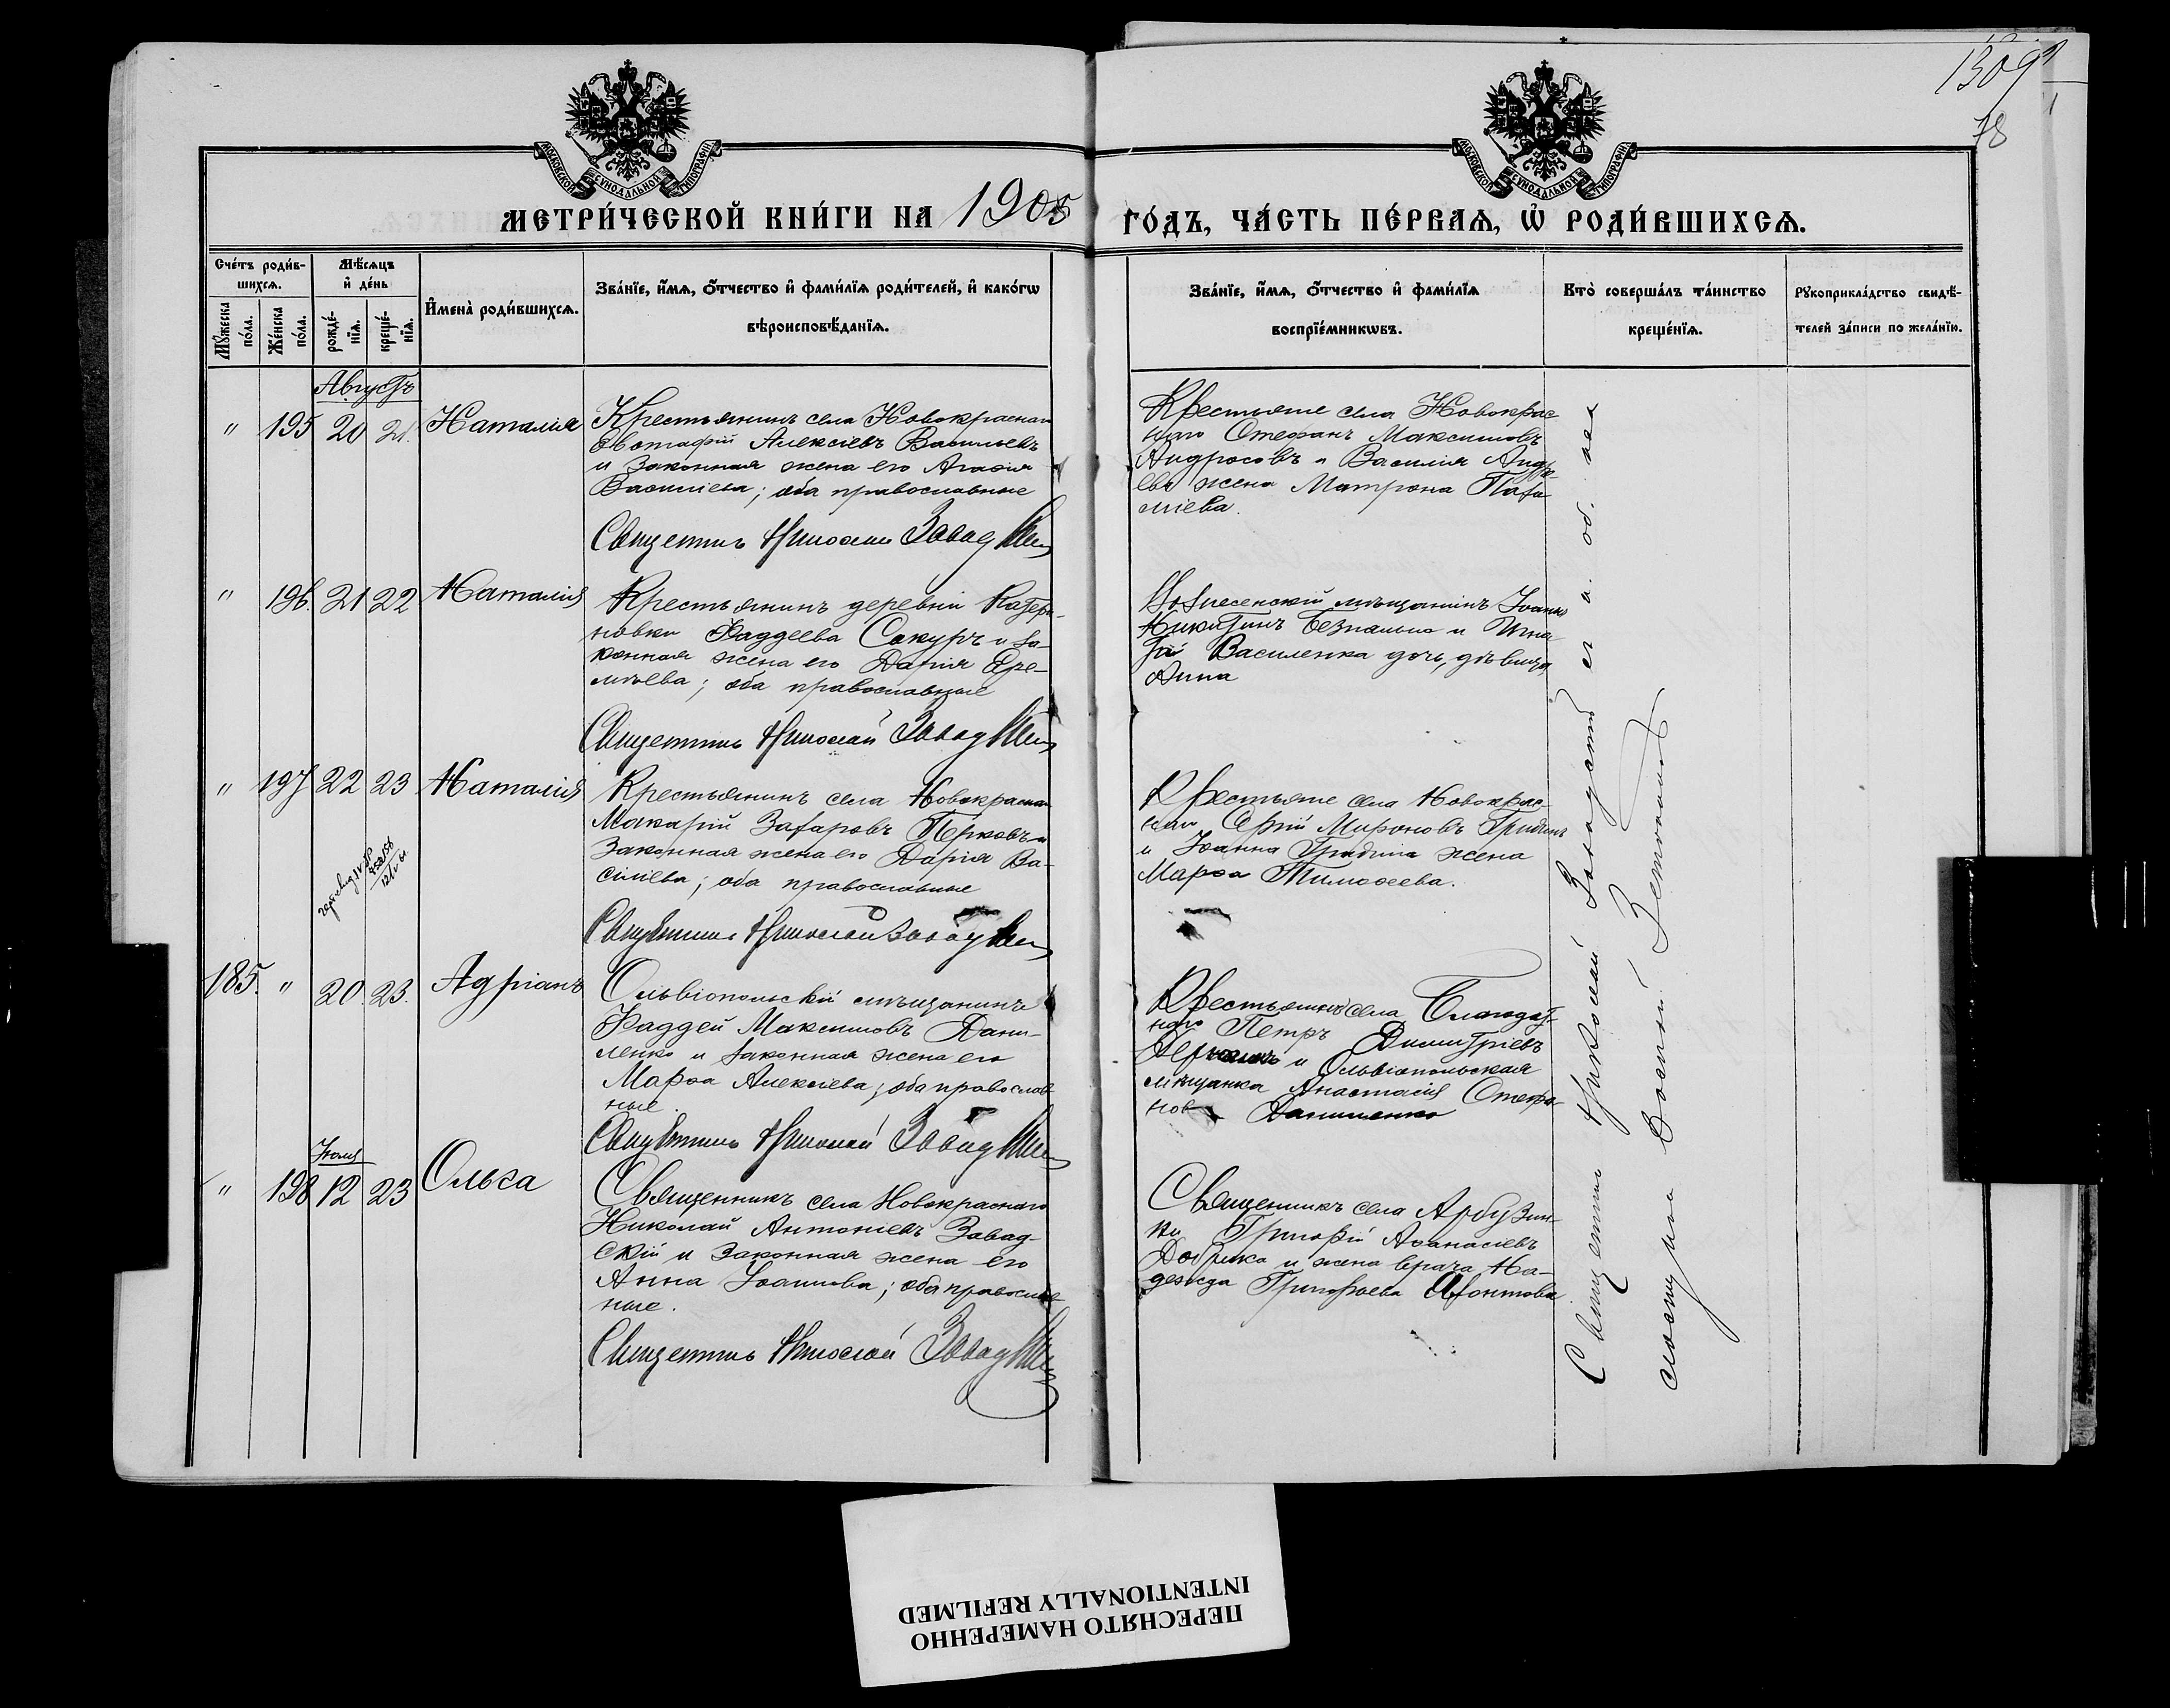 1309
78
МОСКОВСКОЙ СѴНОДАЛЬНОЙ ТИПОГРАФІИ
МОСКОВСКОЙ СѴНОДАЛЬНОЙ ТИПОГРАФІИ
МЕТРИ́ЧЕСКОЙ КНИ́ГИ НА 1905 ГО́ДЪ, ЧА́СТЬ ПЕ́РВАЯ, Ѡ҆ РОДИ́ВШИХСЯ.
Сче́тъ роди́в-
шихся.
Мꙋ́жеска по́ла.
Же́нска по́ла.
Мѣ́сяцъ
и҆ де́нь
рожде́-
нїя.
креще́-
нїя.
И҆мена̀ роди́вшихся.
Зва́нїе, и҆́мя, ѻ҆́тчество и҆ фами́лїя роди́телей, и҆ како́гѡ
вѣроисповѣ́данїя.
Зва́нїе, и҆́мя, ѻ҆́тчество и҆ фами́лїя
воспрїе́мникѡвъ.
Кто̀ соверша́лъ та́инство
креще́нїя.
Рꙋкоприкла́дство свидѣ́-
телей за́писи по жела́нїю.
Августъ
" 195 20 21. Наталія
Крестьянинъ села Новокраснаго
Евстафій Алексіевъ Васильевъ
и законная жена его Агафія
Василіева; оба православные
Священникъ Николай Завадскій
Крестьяне села Новокрас-
наго Стефанъ Максимовъ
Андросовъ и Василія Андре-
ева жена Матрона
" 196. 21 22 Наталія
Крестьянинъ деревни Катери-
новки Фаддеева Сакуръ и за-
конная жена его Дарія Ере-
міева; оба православные
Священникъ Николай Завадскій
Вознесенскій мѣщанинъ Іоаннъ
Никитинъ и Игна-
тія Василенка дочь, дѣвица
Анна
" 197 22 23 Наталія
Крестьянинъ села Новокраснаго
Макарій Захаровъ и
законная жена его Дарія Ва-
силіева; оба православные
Священникъ Николай Завадскій
Крестьяне села Новокрас-
наго Сергій Мироновъ
и Іоанна жена
Марѳа Тимоѳеева.
185. " 20 23. Адріанъ
Ольвіопольскій мѣщанинъ
Фаддей Максимовъ Дани-
ленко и законная жена его
Марѳа Алексіева; оба православ-
ные
Священникъ Николай Завадскій
Крестьянинъ села Благодат-
наго Петръ Димитріевъ
и Ольвіопольская
мѣщанка Анастасія Стефа-
нова Даниленко
Іюля
" 198 12 23 Ольга
Священникъ села Новокраснаго
Николай Антоніевъ Завад-
скій и законная жена его
Анна Іоаннова; оба православ-
ные.
Священникъ Николай Завадскій
Священникъ села Арбузин-
ки Григорій Аѳанасіевъ
и жена врача На-
дежда Григорьева
Священникъ Николай Завадскій
ПЕРЕСНЯТО НАМЕРЕННО
INTENTIONALLY REFILMED